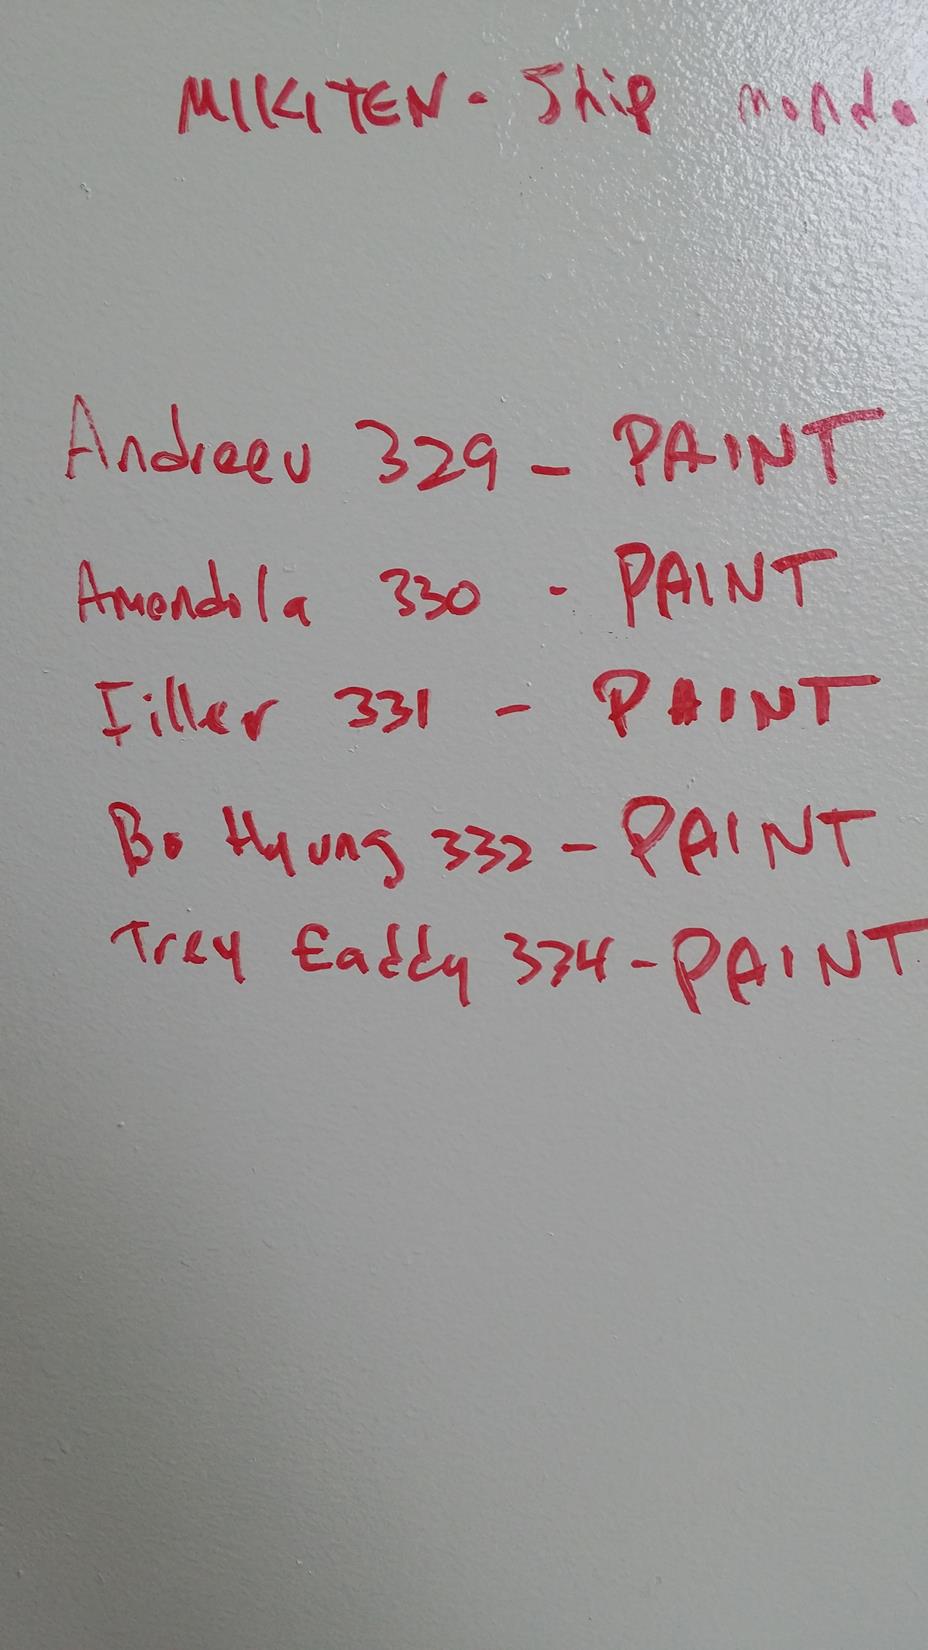 MIKITEN - Ship monda
Andreev 329 - PAINT
Amendola 330 - PAINT
Filler 331 - PAINT
Bo Hyung 332 - PAINT
Trey Eaddy 334 - PAINT